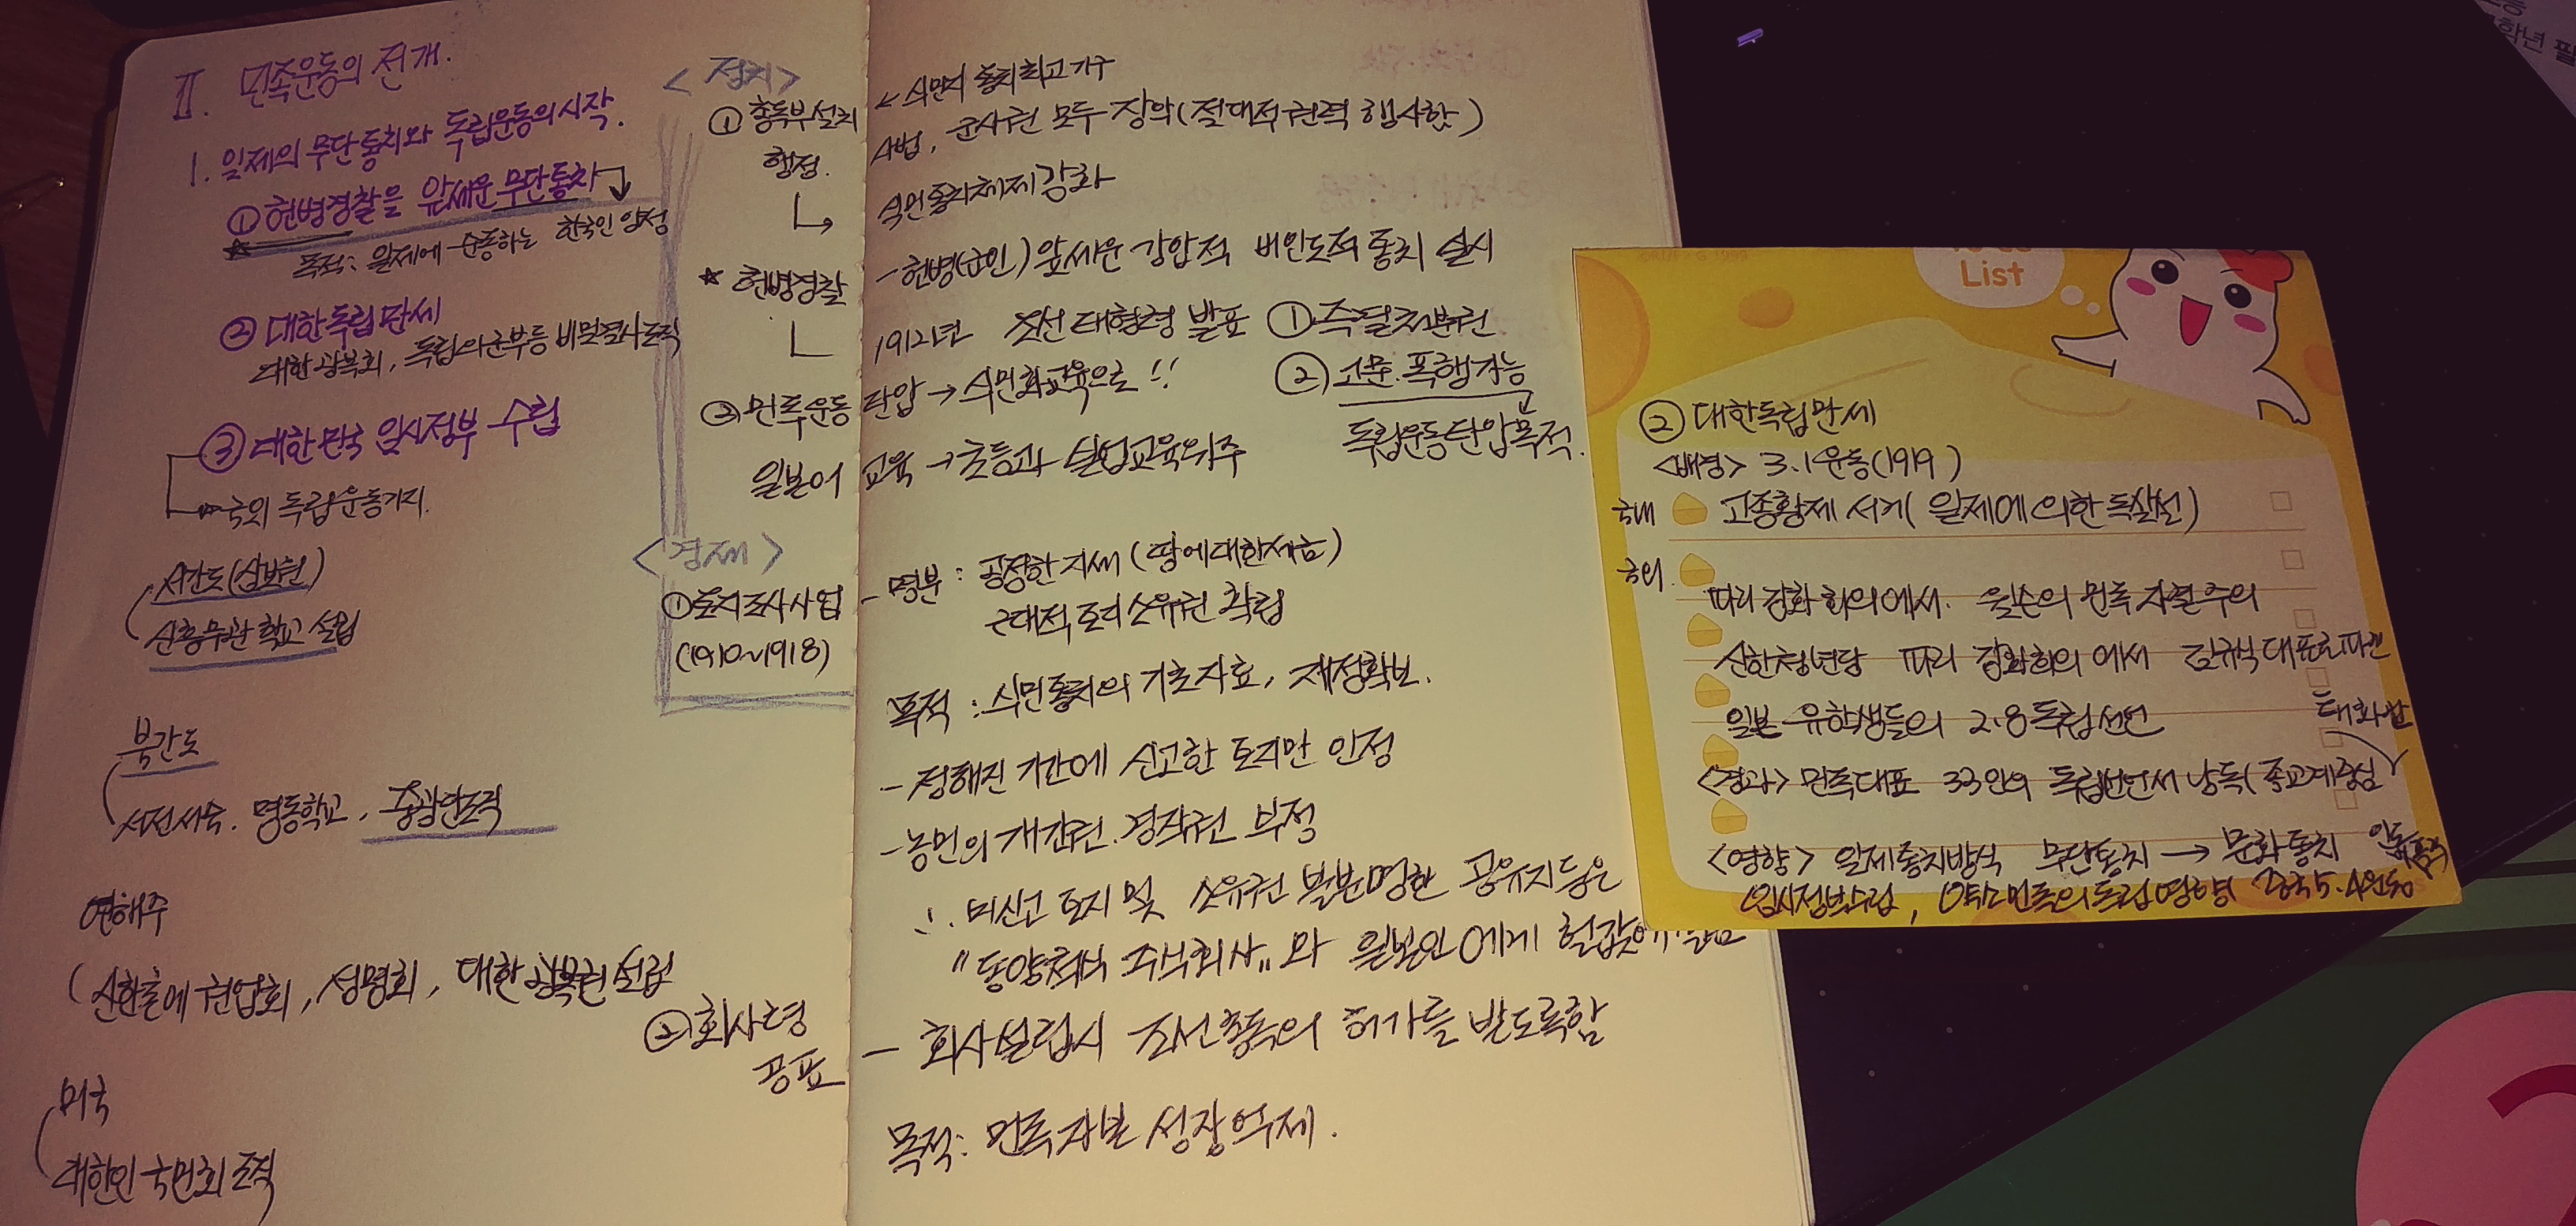 II. 민족운동의 전개.
1. 일제의 무단통치와 독립운동의 시작.
① 헌병경찰을 앞세운 무단통치
목적: 일제에 순종하는 한국인 양성
② 대한독립만세
대한광복회, 독립의군부등 비밀결사조직
③ 대한민국 임시정부 수립
국외 독립운동기지.
서간도(삼원보)
신흥무관학교 설립
북간도
서전서숙. 명동학교, 중광단조직
연해주
신한촌에 권업회, 성명회, 대한 설립
미국
대한인국민회 조직
<정치>
① 총독부설치 ← 식민지 통치 최고기구
행정. 사법, 군사권 모두 장악(절대적권력 행사함)
↳ 식민통치체제강화
★ 헌병경찰 - 헌병(군인)앞세운 강압적 비인도적통치 실시
1912년 조선태형령 발표 ① 즉결처분권
② 고문. 폭행가능
독립운동단압목적.
③ 민족운동 단압 → 식민화교육으로!!
일본어 교육 → 초등과 실업교육위주
<경제>
① 토지조사사업 - 명분: 공정한지세(땅에대한세금)
(1910~1918) 근대적토지소유권 확립
목적: 식민통치의 기초자료, 재정확보.
- 정해진 기간에 신고한 토지만 인정
- 농민의 개간권. 경작권 부정
∴ 미신고 토지 및 소유권 불분명한 공유지등은
"동양척식 주식회사"와 일본인에게 헐값에
② 회사령
공포 - 회사설립시 조선총독의 허가를 받도록함
목적: 민족자본 성장억제.
List
② 대한독립만세
<배경> 3.1운동(1919)
국내 고종황제 서거(일제에의한독살설)
국외. 파리강화회의에서. 윌슨의 민족자결주의
신한청년당 파리 강화회의에서 김규식대표로파견
일본 유학생들의 2.8독립선언
태화관
<경과> 민족대표 33인의 독립선언서 낭독(종교계중심
<영향> 일제통치방식 무단통치 → 문화통치
임시정부수립, 민족의독립영향 중국5.4운동